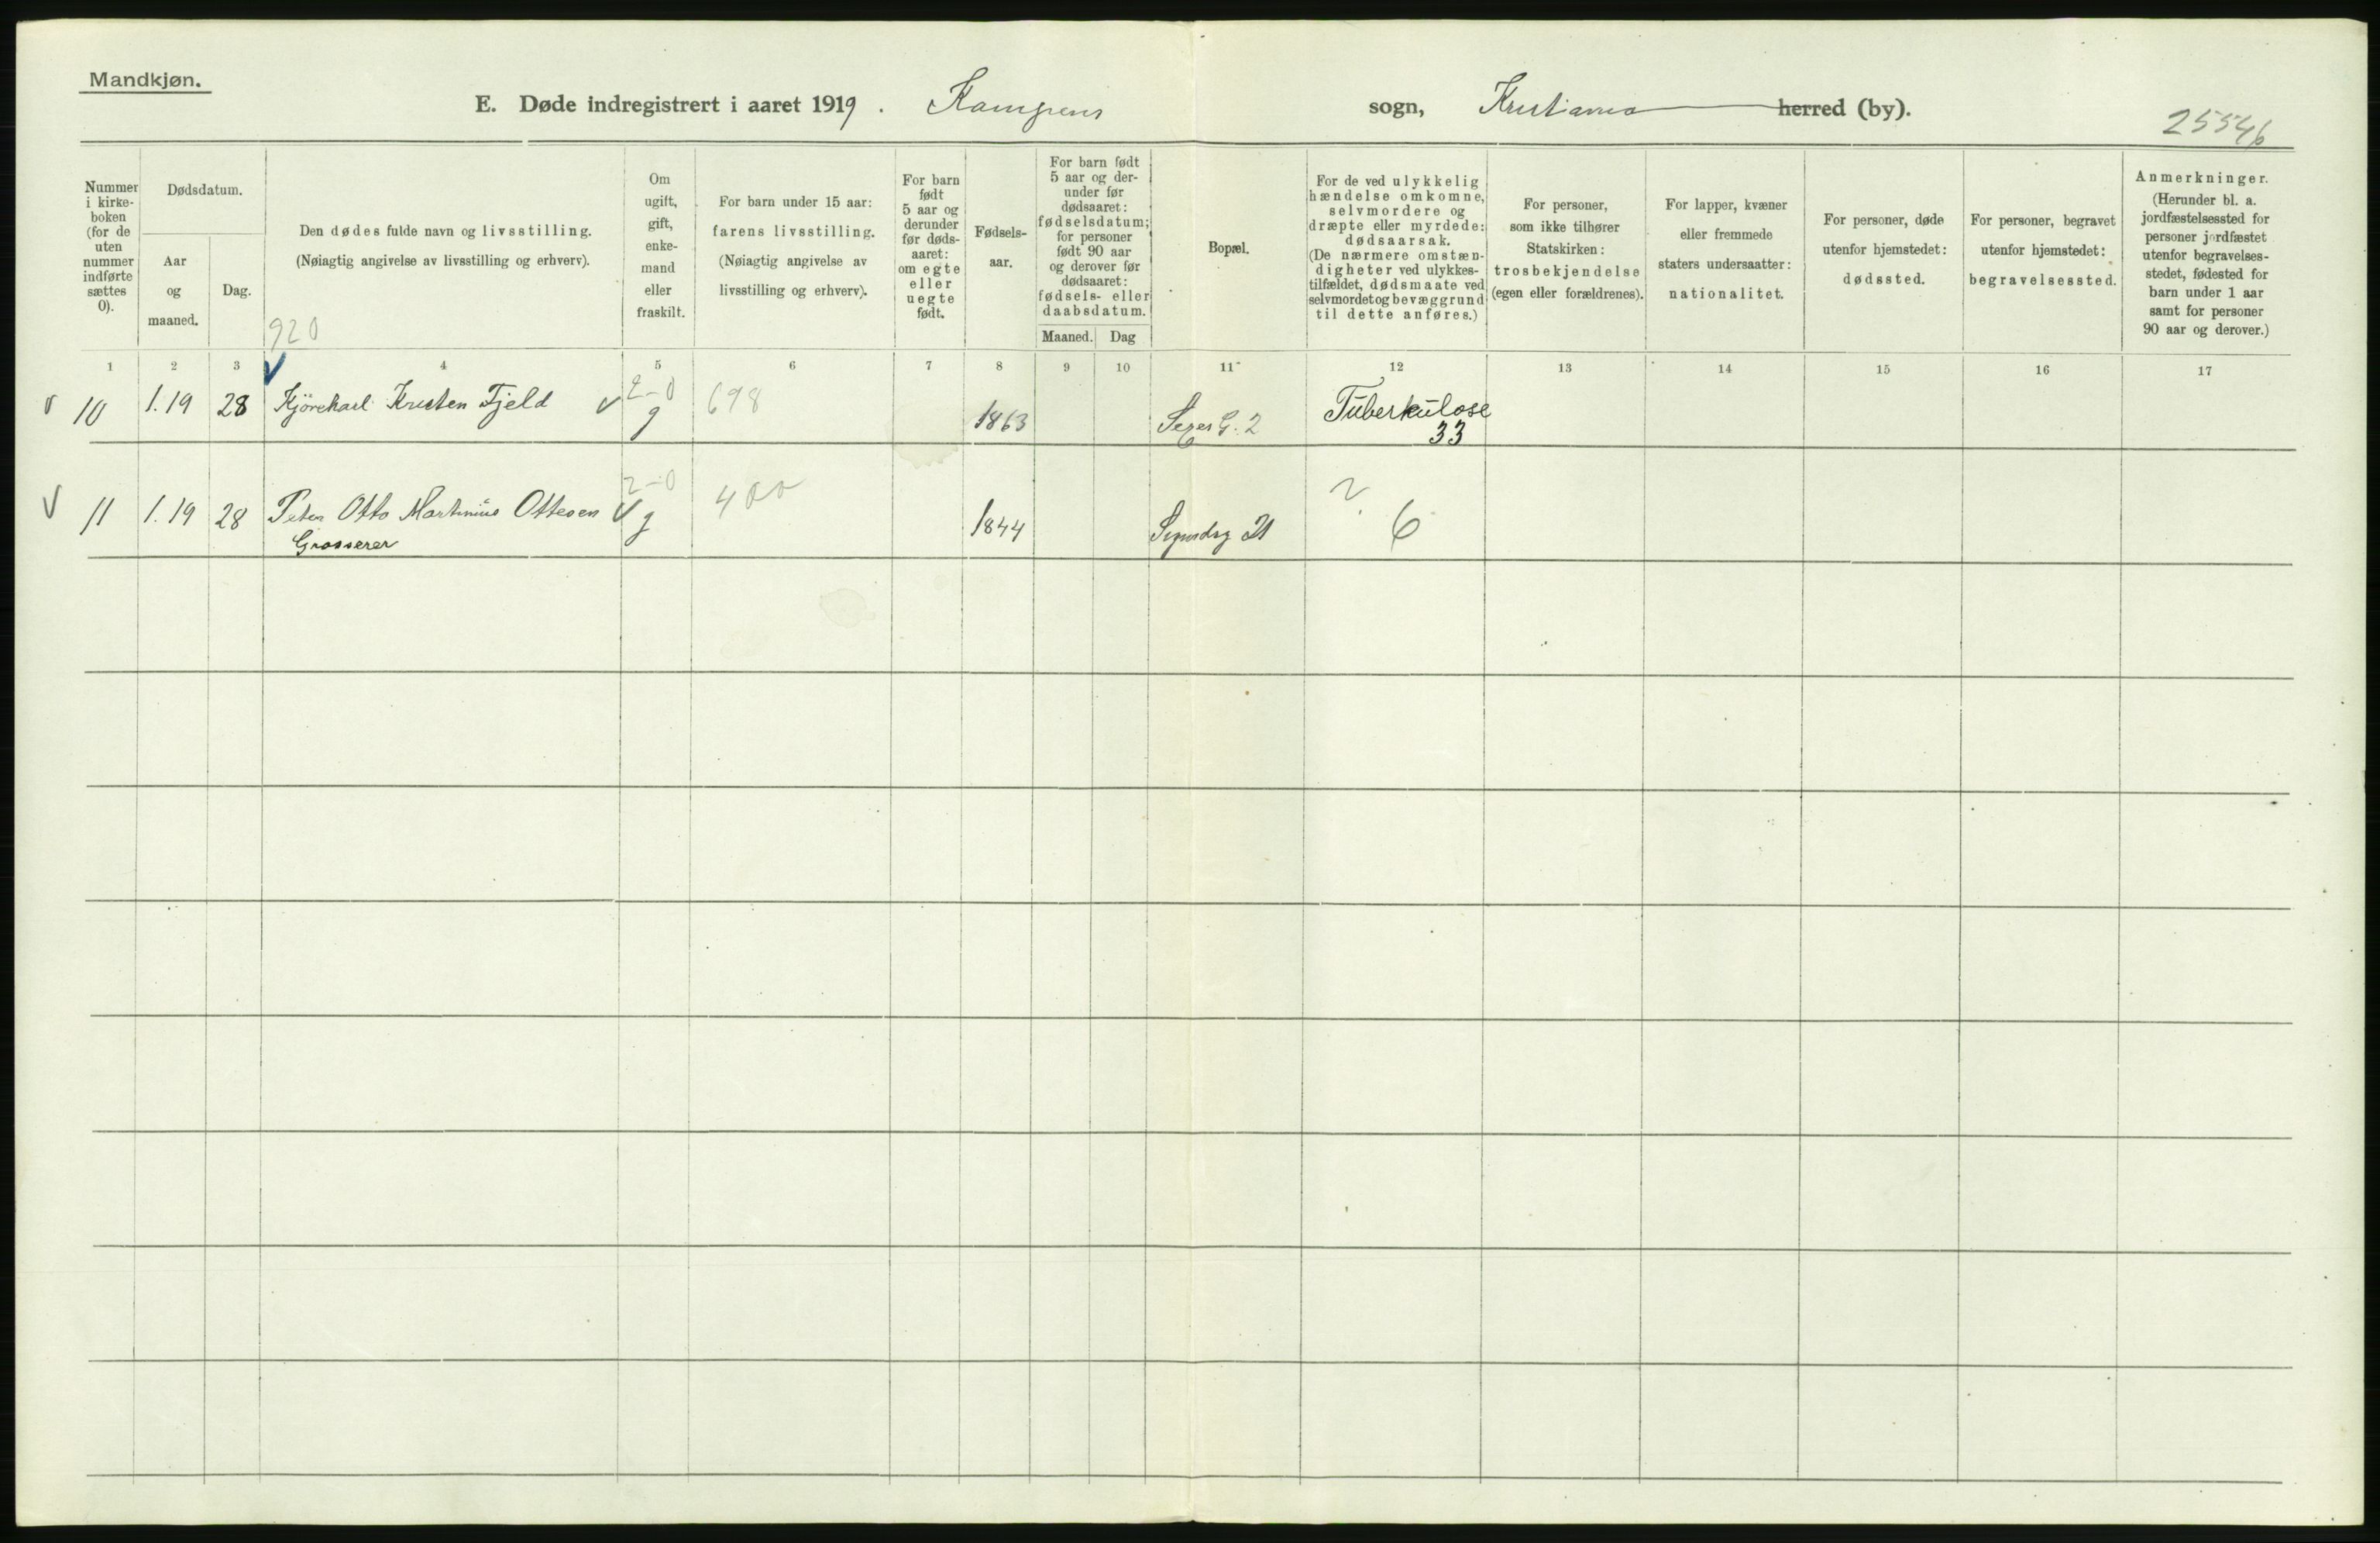 Mandkjøn.
E. Døde indregistrert i aaret 1919. Kampens sogn, Kristiania herred (by).
25546
Nummer i kirke-boken (for de uten nummer indførte sættes 0).
Dødsdatum.
Aar og maaned.
Dag.
Den dødes fulde navn og livsstilling.
(Nøiagtig angivelse av livsstilling og erhverv).
920
Om ugift, gift, enke-mand eller fraskilt.
For barn under 15 aar: farens livsstilling.
(Nøiagtig angivelse av livsstilling og erhverv).
For barn født 5 aar og derunder før døds-aaret: om egte eller uegte født.
Fødsels-aar.
For barn født 5 aar og der-under før dødsaaret: fødselsdatum; for personer født 90 aar og derover før dødsaaret: fødsels- eller daabsdatum.
Maaned. Dag
Bopæl.
For de ved ulykkelig hændelse omkomne, selvmordere og dræpte eller myrdede: dødsaarsak.
(De nærmere omstæn-digheter ved ulykkes-tilfældet, dødsmaate ved selvmordet og bevæggrund til dette anføres.)
For personer, som ikke tilhører Statskirken: trosbekjendelse (egen eller forældrenes).
For lapper, kvæner eller fremmede staters undersaatter: nationalitet.
For personer, døde utenfor hjemstedet: dødssted.
For personer, begravet utenfor hjemstedet: begravelsessted.
Anmerkninger.
(Herunder bl. a. jordfæstelsessted for personer jordfæstet utenfor begravelses-stedet, fødested for barn under 1 aar samt for personer 90 aar og derover.)
1 2 3 4 5 6 7 8 9 10 11 12 13 14 15 16 17
10 1.19 28 Kjörekarl Kristen Fjeld 2-0 g 698 1863 Seges G. 2 Tüberkülose 33
11 1.19 28 Peter Otto Martinius Ottesen 2-0 g 400 1844 21 ? 6
Grosserer